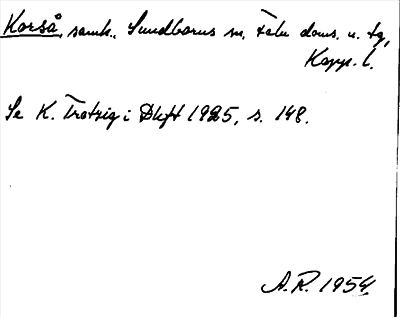 Korså, samh., Sundborns sn, Falu doms. u. tg,
Kopp. l.
Se K. Trotzig i Dhft 1925, s. 148.
A.R. 1954